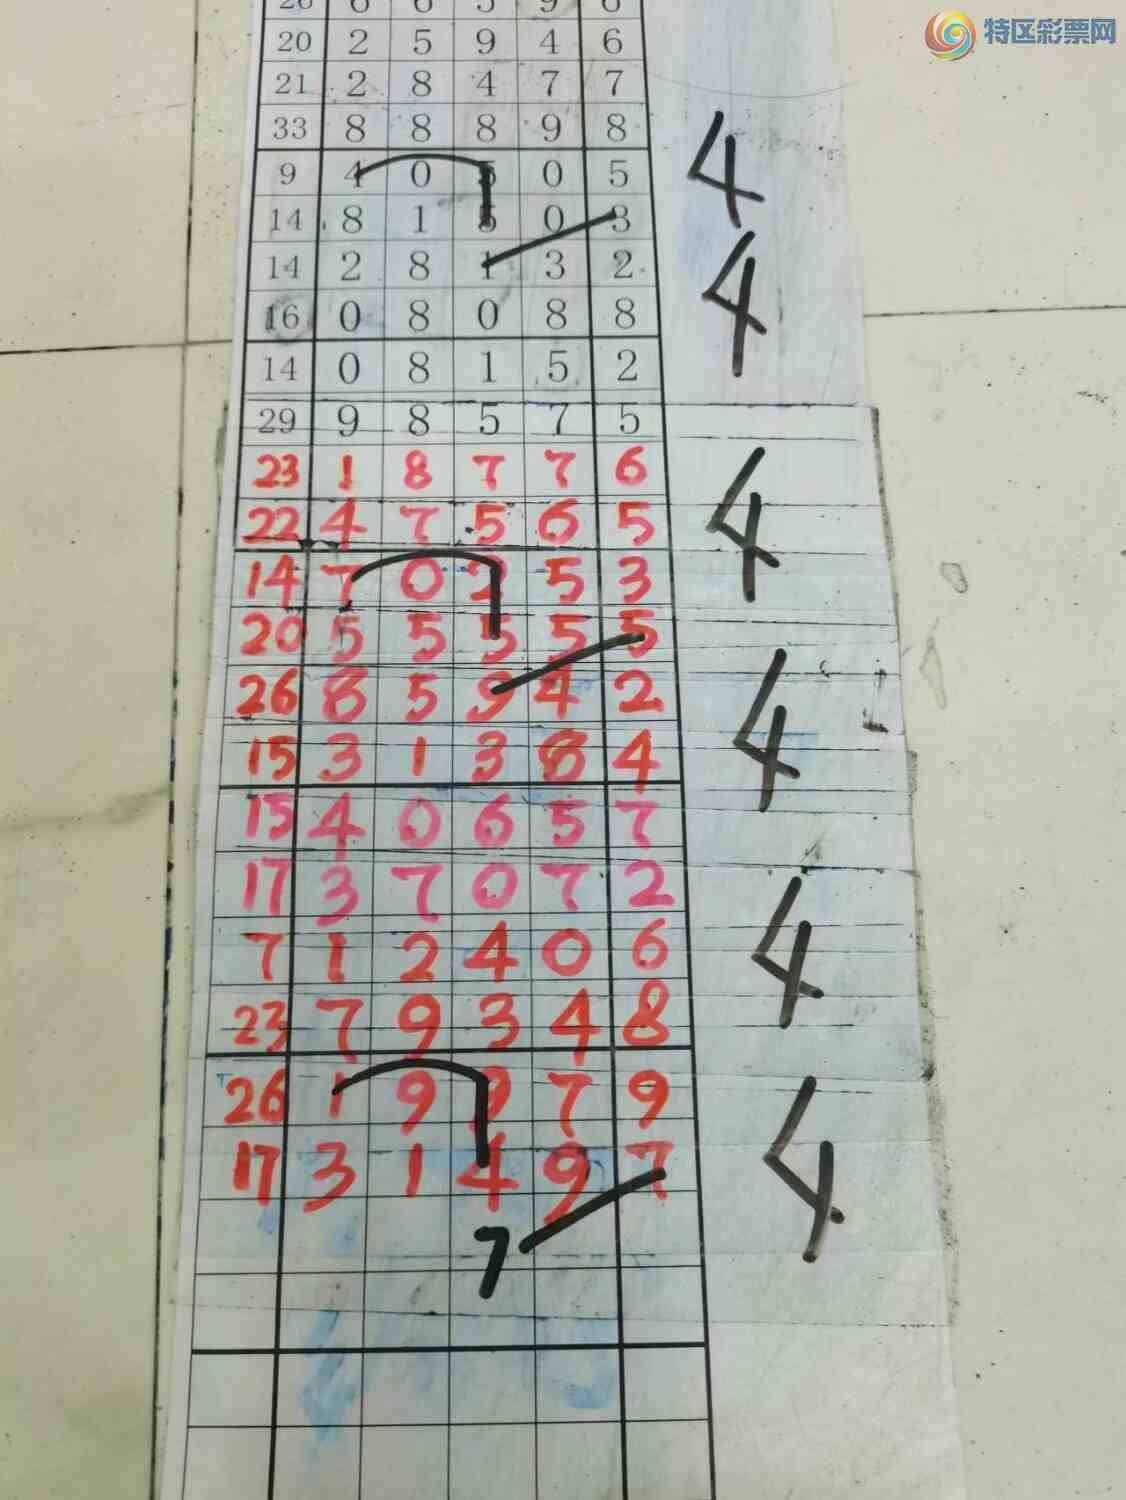 特区彩票网
20 2 5 9 4 6
21 2 8 4 7 7
33 8 8 8 9 8
9 4 0 5 0 5
4
14 8 1 5 0 3
14 2 8 1 3 2
4
16 0 8 0 8 8
14 0 8 1 5 2
29 9 8 5 7 5
23 1 8 7 7 6
22 4 7 5 6 5
4
14 7 0 2 5 3
20 5 5 5 5 5
26 8 5 9 4 2
4
15 3 1 3 8 4
15 4 0 6 5 7
17 3 7 0 7 2
7 1 2 4 0 6
4
23 7 9 3 4 8
26 1 9 9 7 9
17 3 1 4 9 7
4
7